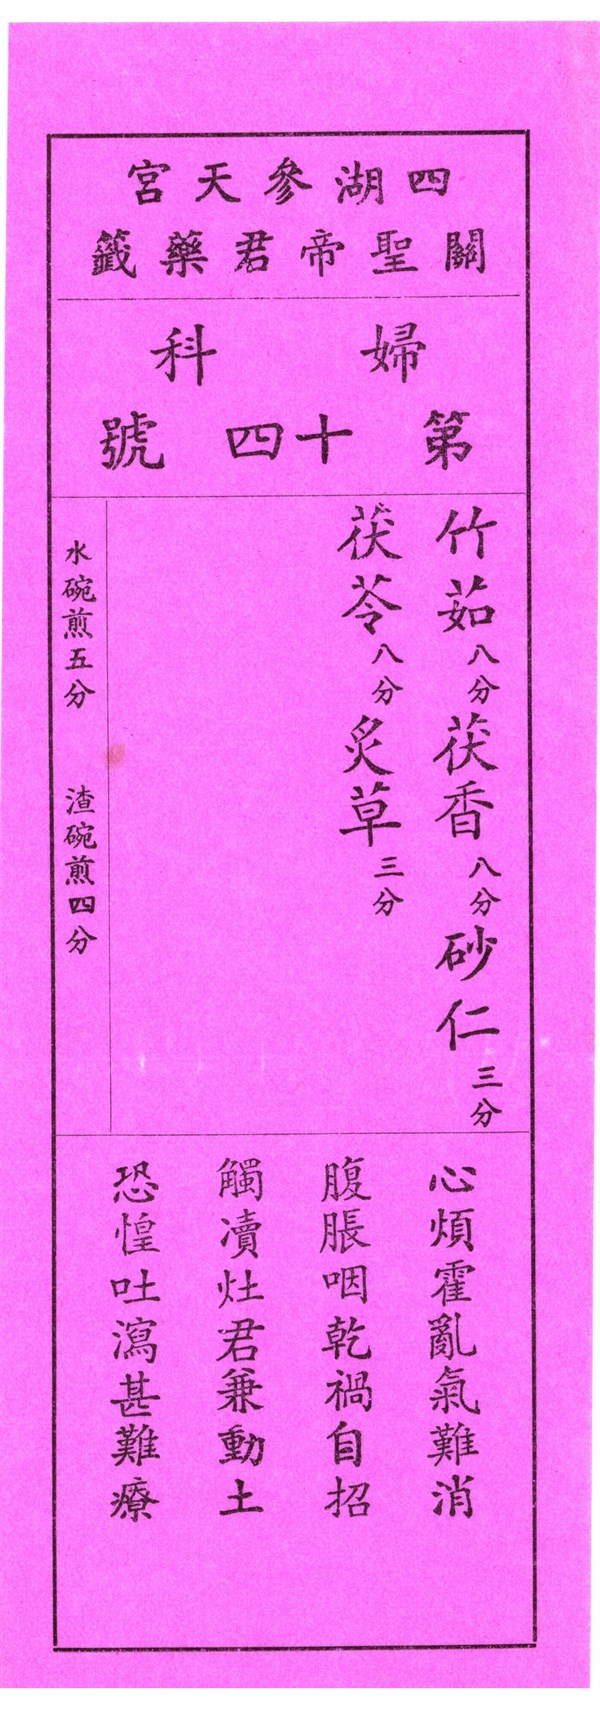 四湖參天宮
關聖帝君藥籤
婦科
第十四號
竹茹八分茯香八分砂仁三分
茯苓八分炙草三分
水碗煎五分　渣碗煎四分
心煩霍亂氣難消
腹脹咽乾禍自招
觸凟灶君兼動土
恐惶吐瀉甚難療